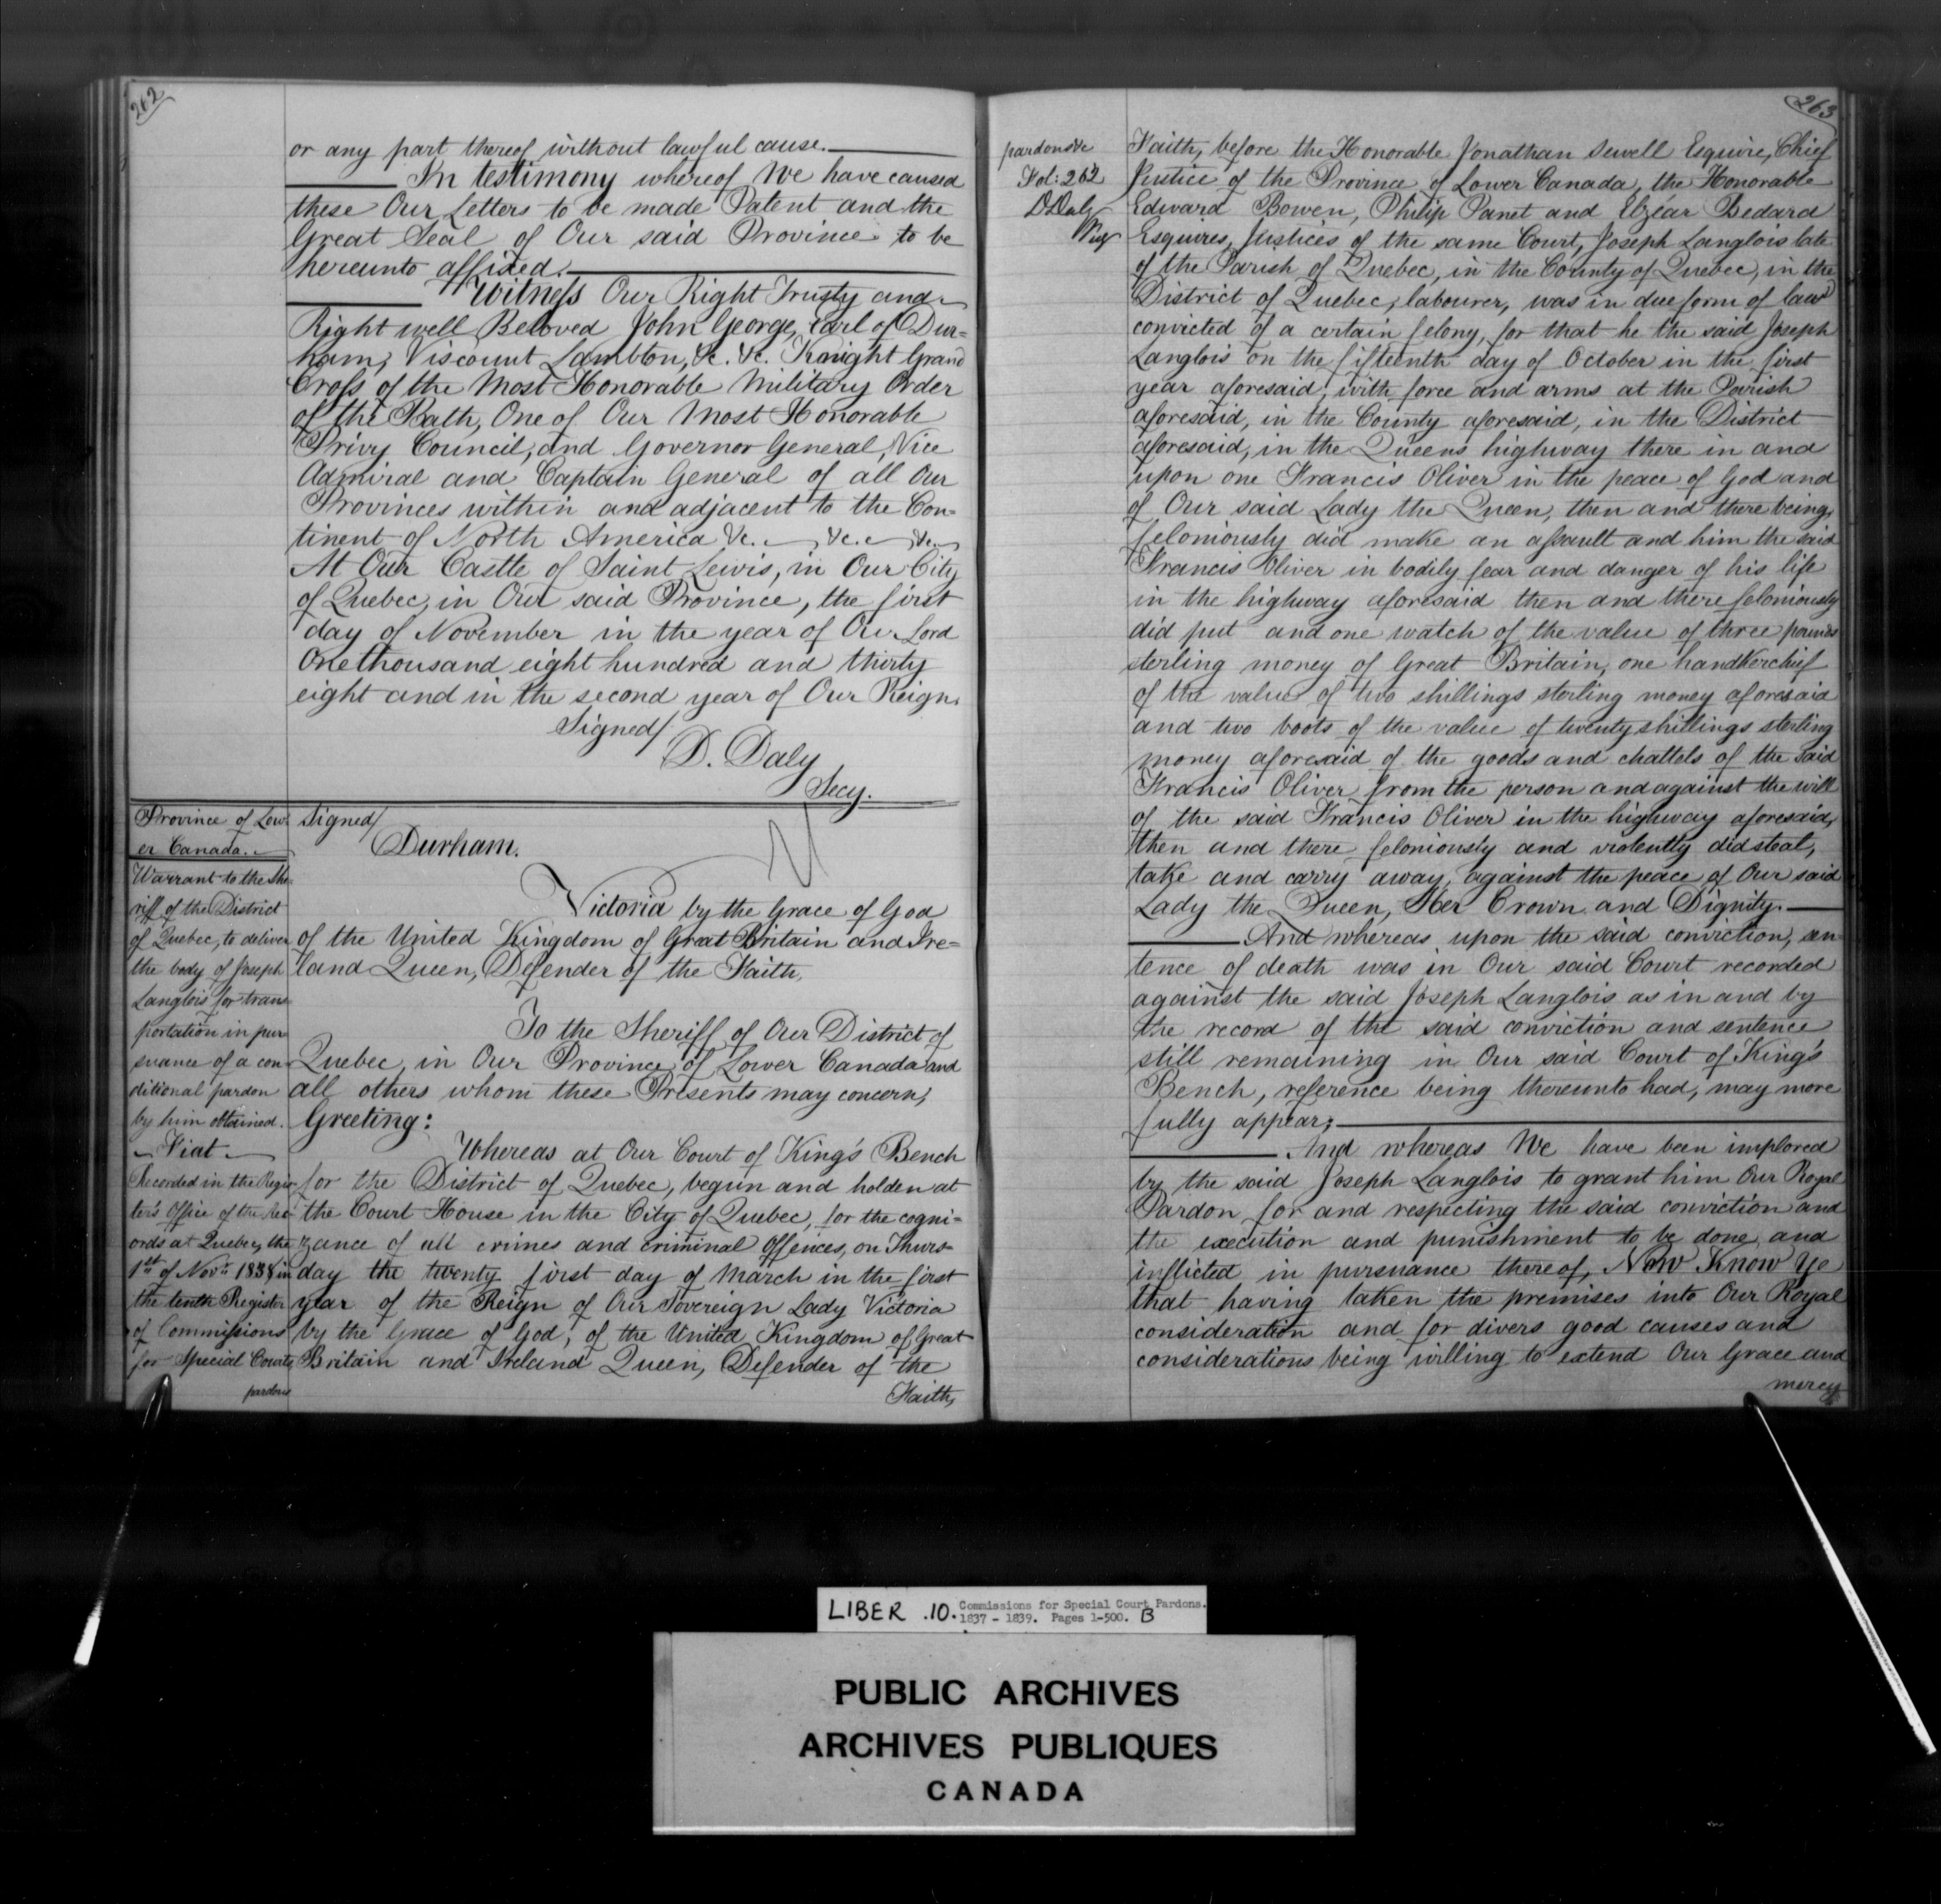 262
or any part thereof without lawful cause.
In testimony whereof We have caused
these Our Letters to be made Patent and the
Great Seal of Our said Province to be
hereunto affixed.
Witness Our Right Trusty and
Right well Beloved John George, Earl of Dur=
ham, Viscount Lambton, &c. &c. Knight Grand
Cross of the Most Honorable Military Order
of the Bath, One of Our Most Honorable
Privy Council, and Governor General, Vice
Admiral and Captain General of all Our
Provinces within and adjacent to the Con=
tinent of North America &c. &c. &c.
At Our Castle of Saint Lewis, in Our City
of Quebec, in Our said Province, the first
day of November in the year of Our Lord
One thousand eight hundred and thirty
eight and in the second year of Our Reign.
Signed/
D. Daly
Secy.
Province of Low-
er Canada.
Warrant to the She-
riff of the District
of Quebec, to deliver
the body of Joseph
Langlois for trans-
portation in pur-
suance of a con-
ditional pardon
by him obtained.
Fiat
Recorded in the Regis-
ter's Office of the Rec-
ords at Quebec, the
1st of Novr. 1838 in
the tenth Register
of Commissions
for Special Courts
pardons
Signed/
Durham.
Victoria by the Grace of God
of the United Kingdom of Great Britain and Ire=
land Queen, Defender of the Faith,
To the Sheriff of Our District of
Quebec, in Our Province of Lower Canada and
all others whom these Presents may concern,
Greeting:
Whereas at Our Court of King's Bench
for the District of Quebec, begun and holden at
the Court House in the City of Quebec, for the cogni=
zance of all crimes and criminal Offences, on Thurs=
day the twenty first day of March in the first
year of the Reign of Our Sovereign Lady Victoria
by the Grace of God, of the United Kingdom of Great
Britain and Ireland Queen, Defender of the
Faith,
263
pardons &c
Fol: 262
D Daly
Faith, before the Honorable Jonathan Sewell Esquire, Chief
Justice of the Province of Lower Canada, the Honorable
Edward Bowen, Philip Panet and Elzéar Bedard
Esquires, Justices of the same Court, Joseph Langlois late
of the Parish of Quebec, in the County of Quebec, in the
District of Quebec, labourer, was in due form of law
convicted of a certain felony, for that he the said Joseph
Langlois on the fifteenth day of October in the first
year aforesaid, with force and arms at the Parish
aforesaid, in the County aforesaid, in the District
aforesaid, in the Queens highway there in and
upon one Francis Oliver in the peace of God and
of Our said Lady the Queen, then and there being,
feloniously did make an assault and him the said
Francis Oliver in bodily fear and danger of his life
in the highway aforesaid then and there feloniously
did put and one watch of the value of three pounds
sterling money of Great Britain, one handkerchief
of the value of two shillings sterling money aforesaid
and two boots of the value of twenty shillings sterling
money aforesaid of the goods and chattels of the said
Francis Oliver from the person and against the will
of the said Francis Oliver in the highway aforesaid,
then and there feloniously and violently did steal,
take and carry away, against the peace of Our said
Lady the Queen, Her Crown and Dignity.
And whereas upon the said conviction, sen-
tence of death was in Our said Court recorded
against the said Joseph Langlois as in and by
the record of the said conviction and sentence
still remaining in Our said Court of King's
Bench, reference being thereunto had, may more
fully appear;
And whereas We have been implored
by the said Joseph Langlois to grant him Our Royal
Pardon for and respecting the said conviction and
the execution and punishment to be done and
inflicted in pursuance thereof, Now Know Ye
that having taken the premises into Our Royal
consideration and for divers good causes and
considerations being willing to extend Our Grace and
mercy
LIBER .10. Commissions for Special Court Pardons.
1837 - 1839. Pages 1-500. B
PUBLIC ARCHIVES
ARCHIVES PUBLIQUES
CANADA